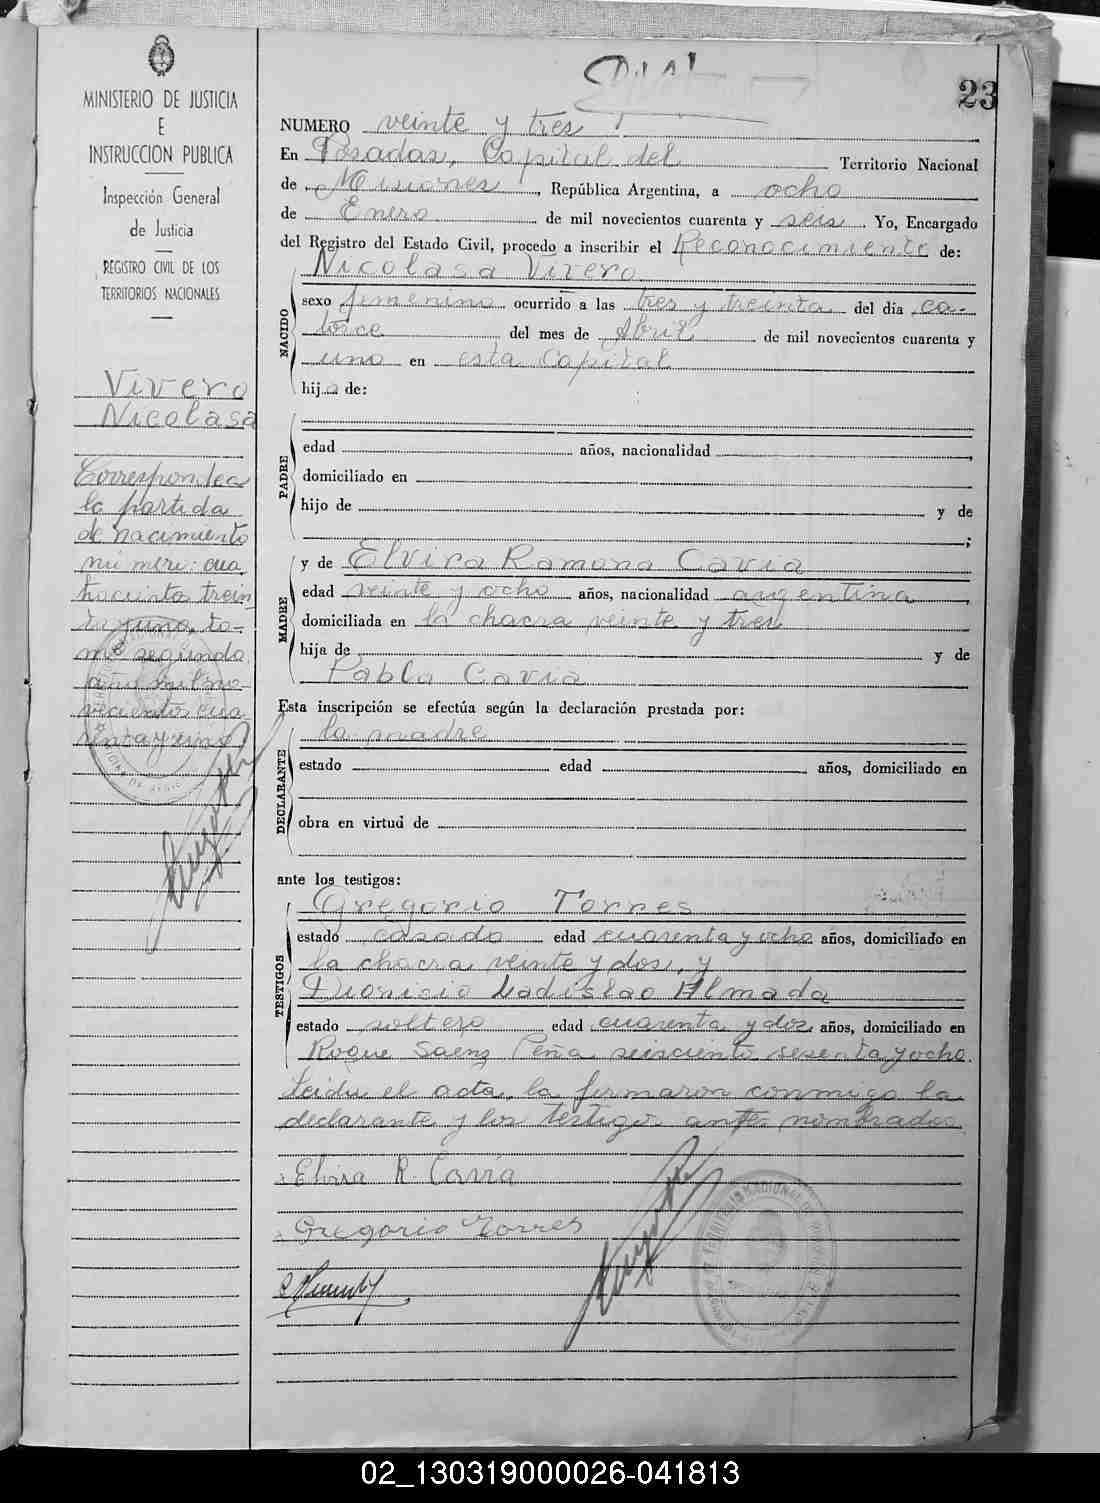 23
MINISTERIO DE JUSTICIA
E
INSTRUCCION PUBLICA
Inspección General
de Justicia
REGISTRO CIVIL DE LOS
TERRITORIOS NACIONALES
Vivero
Nicolasa
Corresponde a
la partida
de nacimiento
cua
trocientos trein
ta y uno, to-
mo segundo
año mil no-
vecientos cua
renta y uno
NUMERO veinte y tres
En Posadas, Capital del Territorio Nacional
de Misiones, República Argentina, a ocho
de Enero de mil novecientos cuarenta y seis. Yo, Encargado
del Registro del Estado Civil, procedo a inscribir el Reconocimiento de:
NACIDO
Nicolasa Vivero
sexo femenino ocurrido a las tres y treinta del día ca-
torce del mes de Abril de mil novecientos cuarenta y
uno en esta Capital
hija de:
PADRE
edad años, nacionalidad
domiciliado en
hijo de y de
;
MADRE
y de Elvira Ramona Cavia
edad veinte y ocho años, nacionalidad argentina
domiciliada en la chacra veinte y tres
hija de y de
Pabla Cavia
Esta inscripción se efectúa según la declaración prestada por:
DECLARANTE
la madre
estado edad años, domiciliado en
obra en virtud de
ante los testigos:
TESTIGOS
Gregorio Torres
estado casado edad cuarenta y ocho años, domiciliado en
la chacra veinte y dos, y
Dionicio Ladislao Almada
estado soltero edad cuarenta y dos años, domiciliado en
Roque Saenz Peña seiscientos sesenta y ocho.
Leida el acta, la firmaron conmigo la
declarante y los testigos antes nombrados.
Elvira R. Cavia
Gregorio Torres
02_130319000026-041813